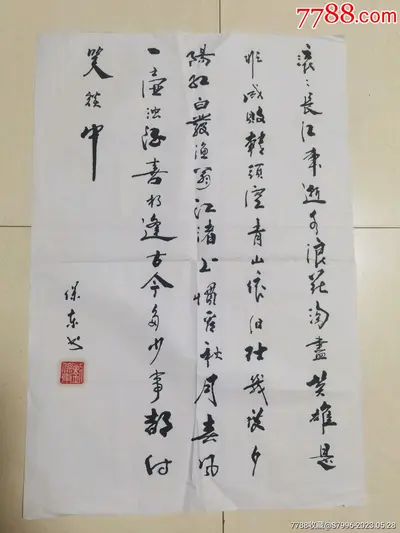 7788.com
滚々長江東逝水浪花淘盡英雄是
非成敗轉頭空青山依旧在幾度夕
陽紅白發渔翁江渚上慣看秋月春风
一壶浊酒喜相逢古今多少事都付
笑談中
保东书
7788收藏@87996-2023.05.28